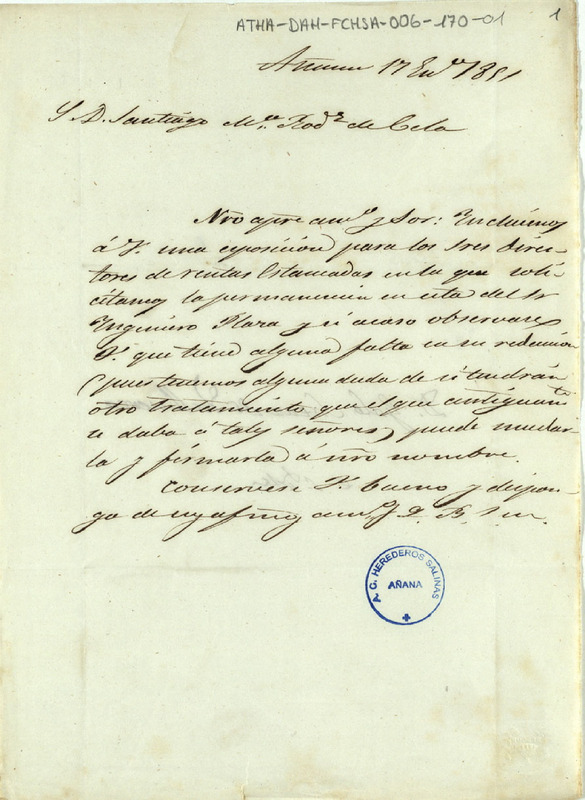 ATHA-DAH-FCHSA-006-170-01
1
Añana 17 En.º 1851
S D. Santiago M.ª Rod.z de Cela
Nro apre am.º y Sor: Incluimos
á V. una esposicion para los tres direc-
tores de rentas Estancadas en la que soli-
citamos la permanencia en esta del Sr
Engeniero Plaza y si acaso observare
V. que tiene alguna falta en su redaccion
(pues tenemos alguna duda de si tendrán
otro tratamiento que el que antiguam.te
se daba á tales señores) puede mudar
la y firmarla á nro nombre.
Conservese V. bueno y dispon-
ga de sus afmos am.s Q. B. S. m.
A. C. HEREDEROS SALINAS
AÑANA